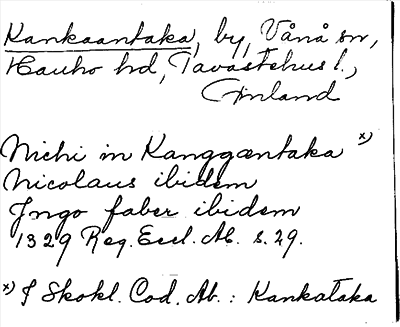 Kankaantaka, by, Vånå sn,
Hauho hd, Tavastehus l.,
Finland
Michi in Kanggæntaka x)
Nicolaus ibidem
Jngo faber ibidem
1329 Reg. Eccl. Ab. s. 29.
x) I Skokl. Cod. Ab. : Kankataka